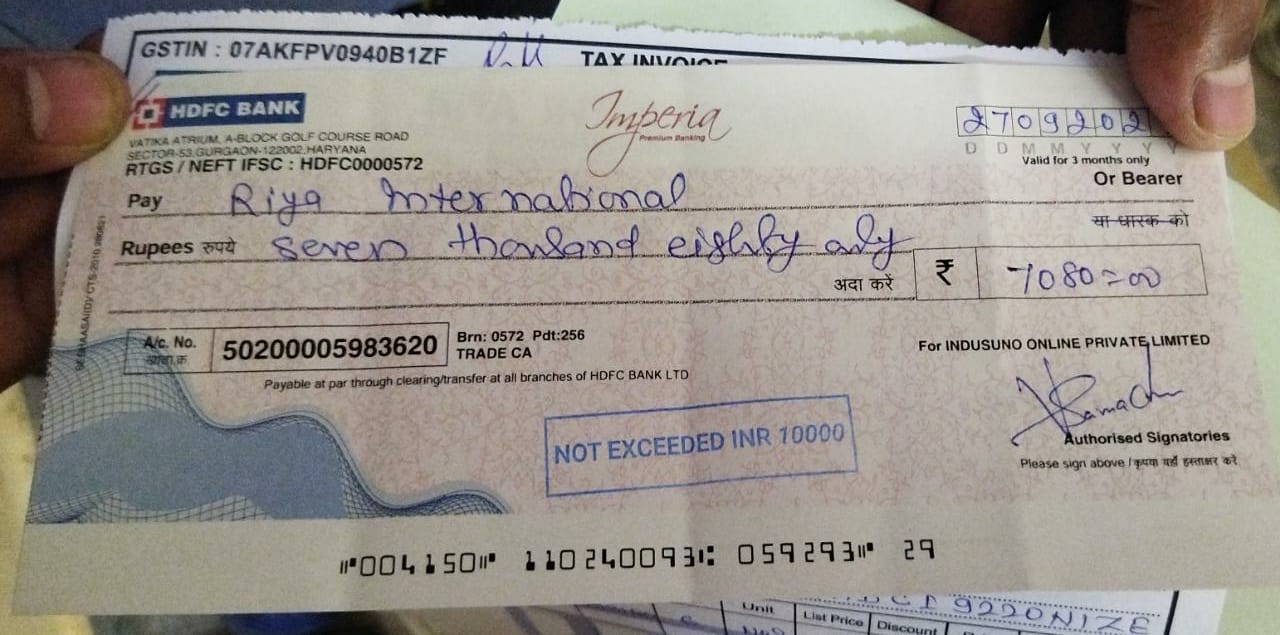 GSTIN : 07AKFPV0940B1ZF TAX INVOICE
HDFC BANK
Imperia
Premium Banking
VATIKA ATRIUM, A-BLOCK GOLF COURSE ROAD
SECTOR-53, GURGAON-122002, HARYANA
RTGS / NEFT IFSC : HDFC0000572
2709202
D D M M Y Y Y Y
Valid for 3 months only
Pay Riya International Or Bearer
या धारक को
Rupees रुपये seven thousand eighty only
अदा करें ₹ 7080=00
A/c. No. 50200005983620 Brn: 0572 Pdt:256
TRADE CA
Payable at par through clearing/transfer at all branches of HDFC BANK LTD
For INDUSUNO ONLINE PRIVATE LIMITED
NOT EXCEEDED INR 10000
Authorised Signatories
Please sign above / कृपया यहाँ हस्ताक्षर करें
⑈004150⑈ 110240093⑆ 059293⑈ 29
9220NIZE
Unit List Price Discount